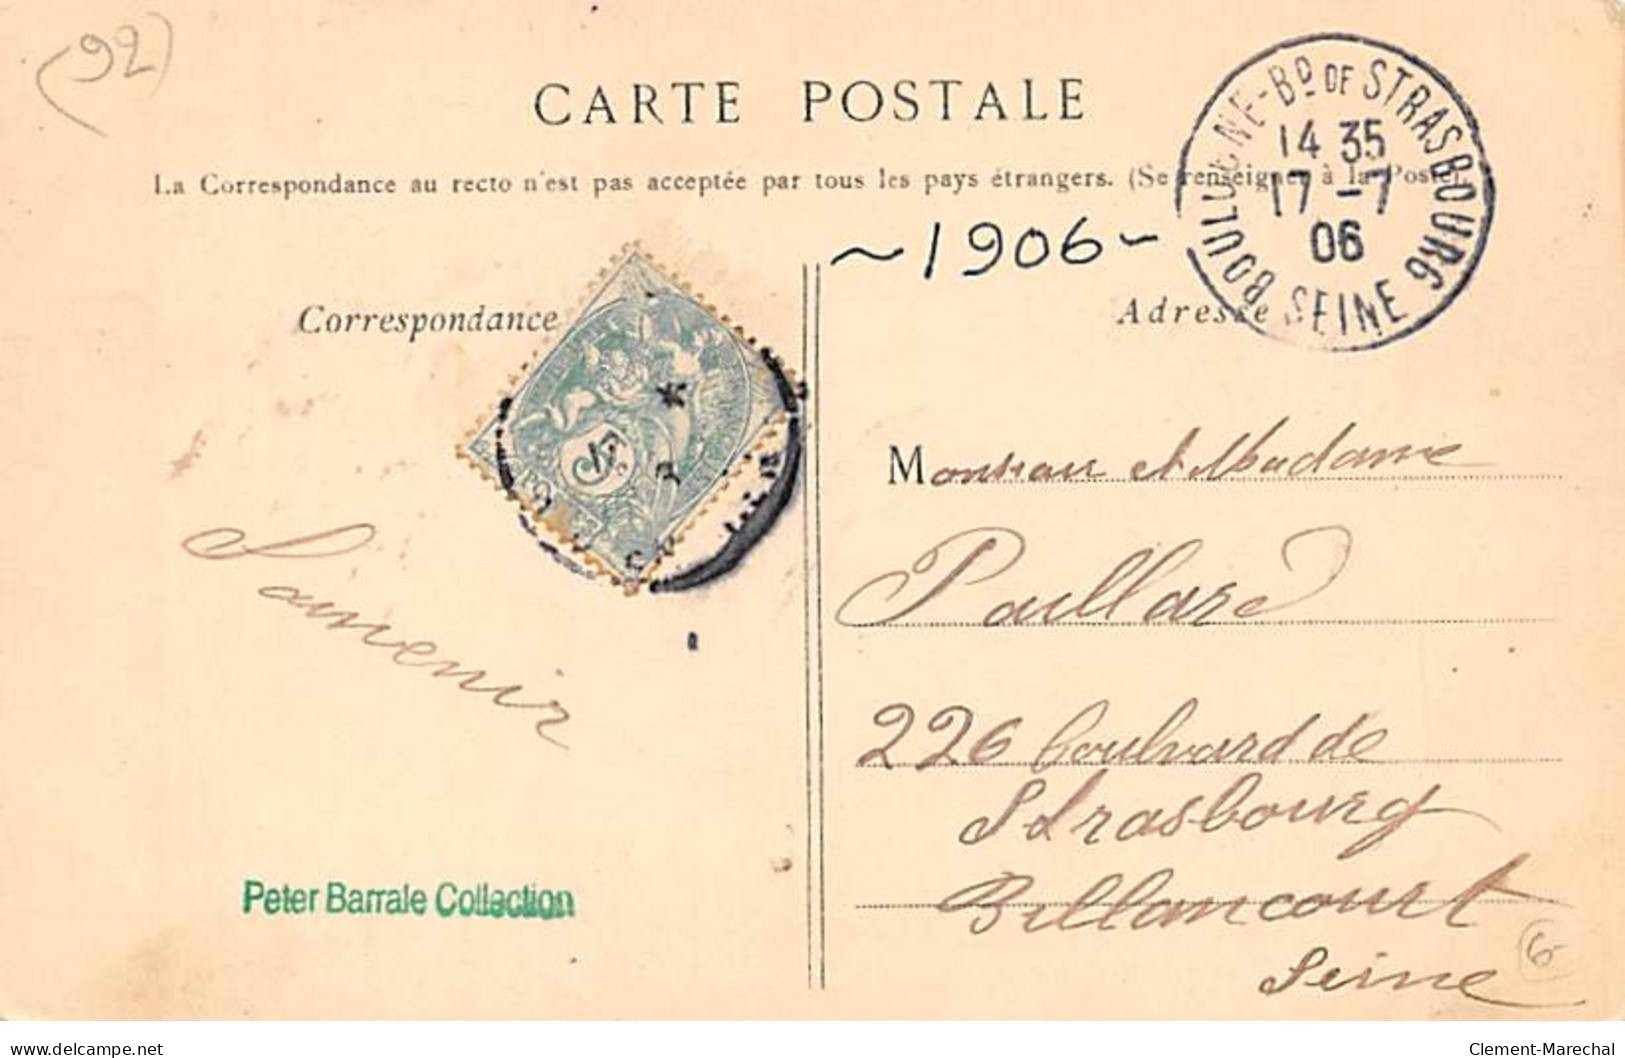 (92)
CARTE POSTALE
La Correspondance au recto n'est pas acceptée par tous les pays étrangers. (Se renseigner à la Poste).
BOULOGNE-Bd DE STRASBOURG
14 35
17 -7
06
SEINE
~1906~
Correspondance
Adresse
Monsieur et Madame
Paillard
226 boulvard de
Strasbourg
Billancourt
Seine
Souvenir
Peter Barrale Collection
6
delcampe.net
Clement-Marechal